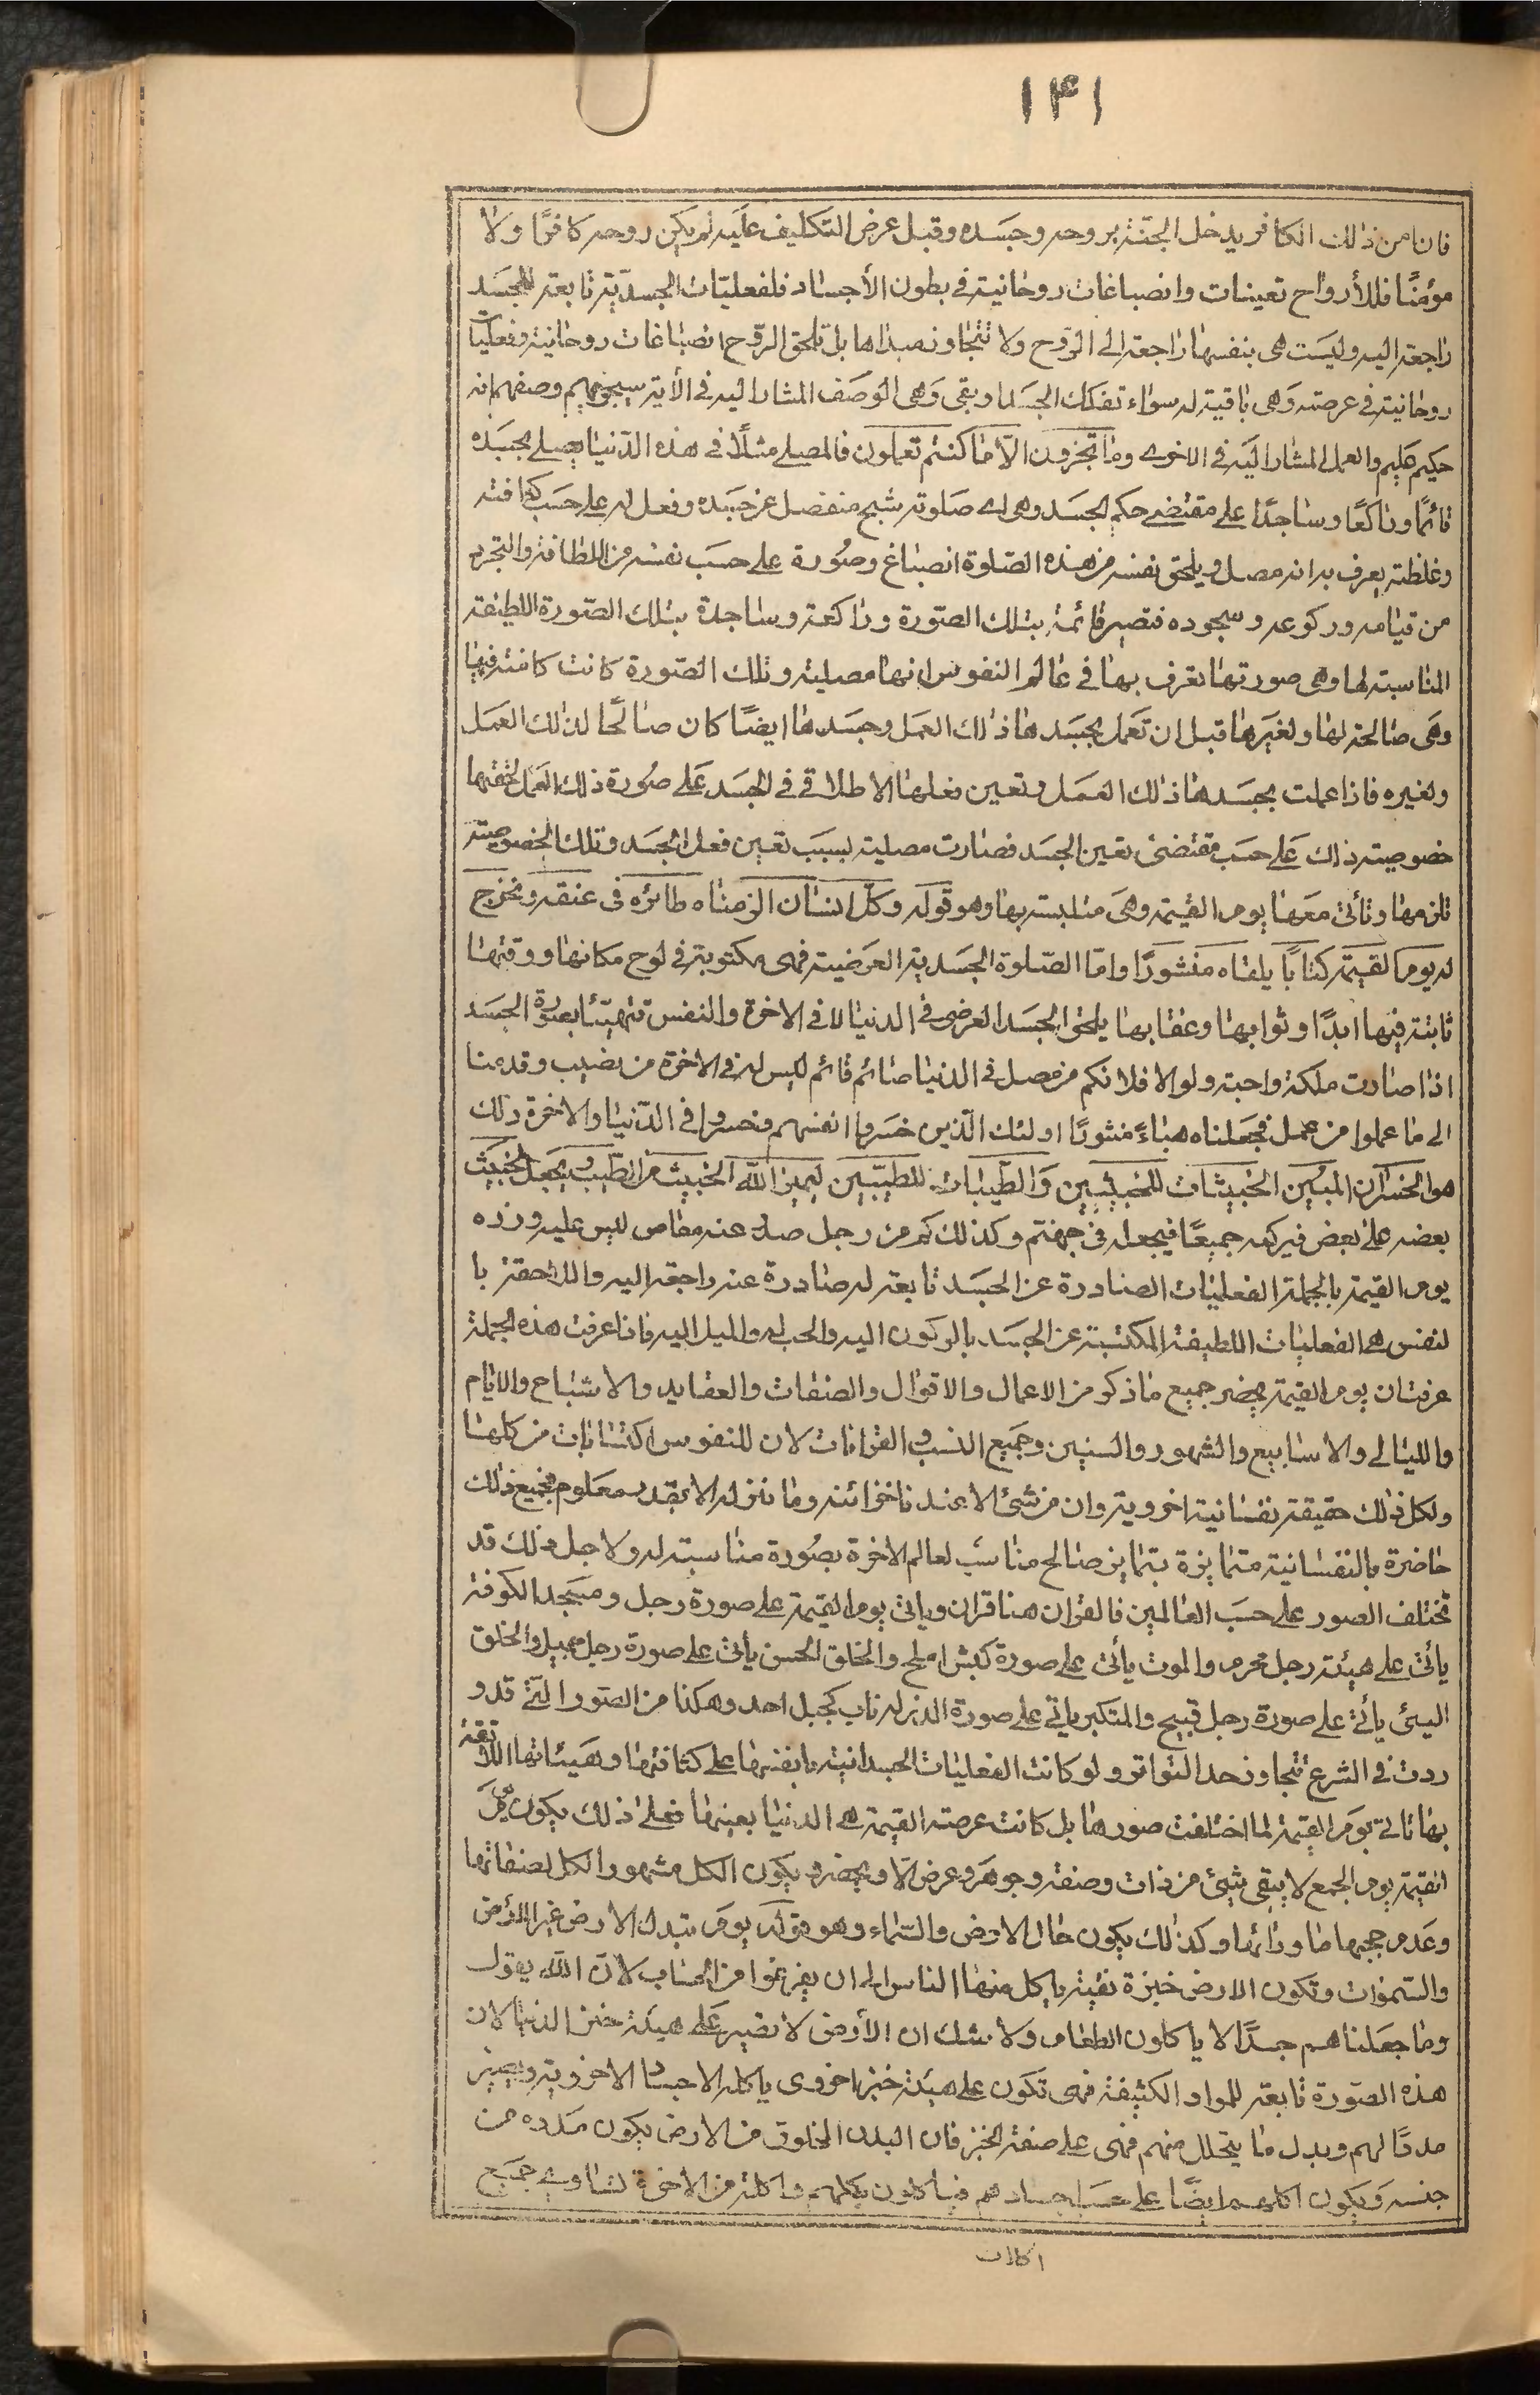 ۱۴۱
فان امن ذلك الكافر يدخل الجنة بروحه وجسده وقبل عرض التكليف عليه لم يكن روحه كافرا ولا
مؤمنًا فللأرواح تعينات وانصباغات روحانية في بطون الأجساد فلفعليات الجسدية تابعة للجسد
راجعة اليه وليست هي بنفسها راجعة الى الروح ولا تتجاوز مبدأها بل تلحق الروح انصباغات روحانية وفعليات
روحانية في عرصته وهي باقية له سواء تفكك الجسد او بقى وهى الوصف المشار اليه في الأية سيجزيهم وصفهم انه
حكيم عليم والعمل المشار اليه في الاخرى وما تجزون الا ما كنتم تعملون فالمصلى مثلًا في هذه الدنيا يصلى بجسده
قائمًا وراكعًا وساجدًا على مقتضى حكم الجسد وهى اى صلوته شبح منفصل عن جسده وفعل له على حسب كثافته
وغلظته يعرف به انه مصل ويلحق نفسه من هذه الصلوة انصباغ وصورة على حسب نفسه من اللطافة والتجرد
من قيامه وركوعه وسجوده فتصير قائمة بتلك الصورة وراكعة وساجدة بتلك الصورة اللطيفة
المناسبة لها وهى صورتها تعرف بها في عالم النفوس انها مصلية وتلك الصورة كانت كامنة فيها
وهى صالحة لها ولغيرها قبل ان تعمل بجسدها ذلك العمل وجسدها ايضًا كان صالحًا لذلك العمل
ولغيره فاذا عملت بجسدها ذلك العمل وتعين فعلها الاطلاقى في الجسد على صورة ذلك العمل لحقتها
خصوصية ذلك على حسب مقتضى تعين الجسد فصارت مصلية بسبب تعين فعل الجسد وتلك الخصوصية
تلزمها وتأتى معها يوم القيمة وهى متلبسة بها وهو قوله وكل انسان الزمناه طائره فى عنقه ونخرج
له يوم القيمة كتابًا يلقاه منشورًا واما الصلوة الجسدية العرضية فهى مكتوبة في لوح مكانها ووقتها
ثابتة فيها ابدًا وثوابها وعقابها يلحق الجسد العرضى فى الدنيا لا في الاخرة والنفس تتهيئا بصورة الجسد
اذا صارت ملكة واجبة ولو الا فلا فكم من مصل في الدنيا صائم قائم ليس له في الاخرة من نصيب وقدمنا
الى ما عملوا من عمل فجعلناه هباءً منثورًا اولئك الذين خسروا انفسهم وخسروا في الدنيا والاخرة ذلك
هو الخسران المبين الخبيثات للخبيثين والطيبات للطيبين ليميز الله الخبيث من الطيب ويجعل الخبيث
بعضه على بعض فيركمه جميعًا فيجعله في جهنم وكذلك كم من رجل صدر عنه معاص ليس عليه وزره
يوم القيمة بالجملة الفعليات الصادرة عن الجسد تابعة له صادرة عنه راجعة اليه واللاحقة با
لنفس هى الفعليات اللطيفة المكتسبة عن الجسد بالركون اليه والحب له والميل اليه فاذا عرفت هذه الجملة
عرفت ان يوم القيمة يحضر جميع ما ذكر من الاعمال والاقوال والصفات والعقايد والاشباح والايام
والليالى والاسابيع والشهور والسنين وجميع النسب والقرانات لان للنفوس اكتسابات من كلها
ولكل ذلك حقيقة نفسانية اخروية وان من شئ الا عندنا خزائنه وما ننزله الا بقدر معلوم فجميع ذلك
حاضرة بالنفسانية متمايزة بتمايز صالح مناسب لعالم الاخرة بصورة مناسبة له ولاجل ذلك قد
تختلف الصور على حسب العالمين فالقران هنا قران وياتى يوم القيمة على صورة رجل ومسجد الكوفة
يأتى على هيئة رجل محرم والموت يأتى على صورة كبش املح والخلق الحسن يأتى على صورة رجل جميل والخلق
السيئ يأتى على صورة رجل قبيح والمتكبر ياتى على صورة الذر له ناب كجبل احد وهكذا من الصور التى قد و
ردت فى الشرع تتجاوز حد التواتر ولو كانت الفعليات الجسدانية بانفسها على كثافتها وهيئاتها اللائقة
بها تاتى يوم القيمة لما اختلفت صورها بل كانت عرصة القيمة هى الدنيا بعينها فعلى ذلك يكون يوم
القيمة يوم الجمع لا يبقى شيئ من ذات وصفة وجوهر وعرض الا ويحضر ويكون الكل مشهورا لكل بصفائها
وعدم حجبها ما ورائها وكذلك يكون حال الارض والسماء وهو قوله يوم تبدل الارض غير الأرض
والسموات وتكون الارض خبزة نقية ياكل منها الناس الى ان يفرغوا من الحساب لان الله يقول
وما جعلناهم جسدًا لا ياكلون الطعام ولا شك ان الأرض لا تصير على هيئة خبز الدنيا لان
هذه الصورة تابعة للمواد الكثيفة فهى تكون على هيئة خبز اخروى ياكله الاجساد الاخروية ويصير
مددًا لهم وبدل ما يتحلل منهم فهى على صفة الخبز فان البدن المخلوق من الارض يكون مدده من
جنسه ويكون اكلهم ايضًا على حسب اجسادهم فياكلون بكلهم واكلة من الاخرة تساوى جميع
اكلات